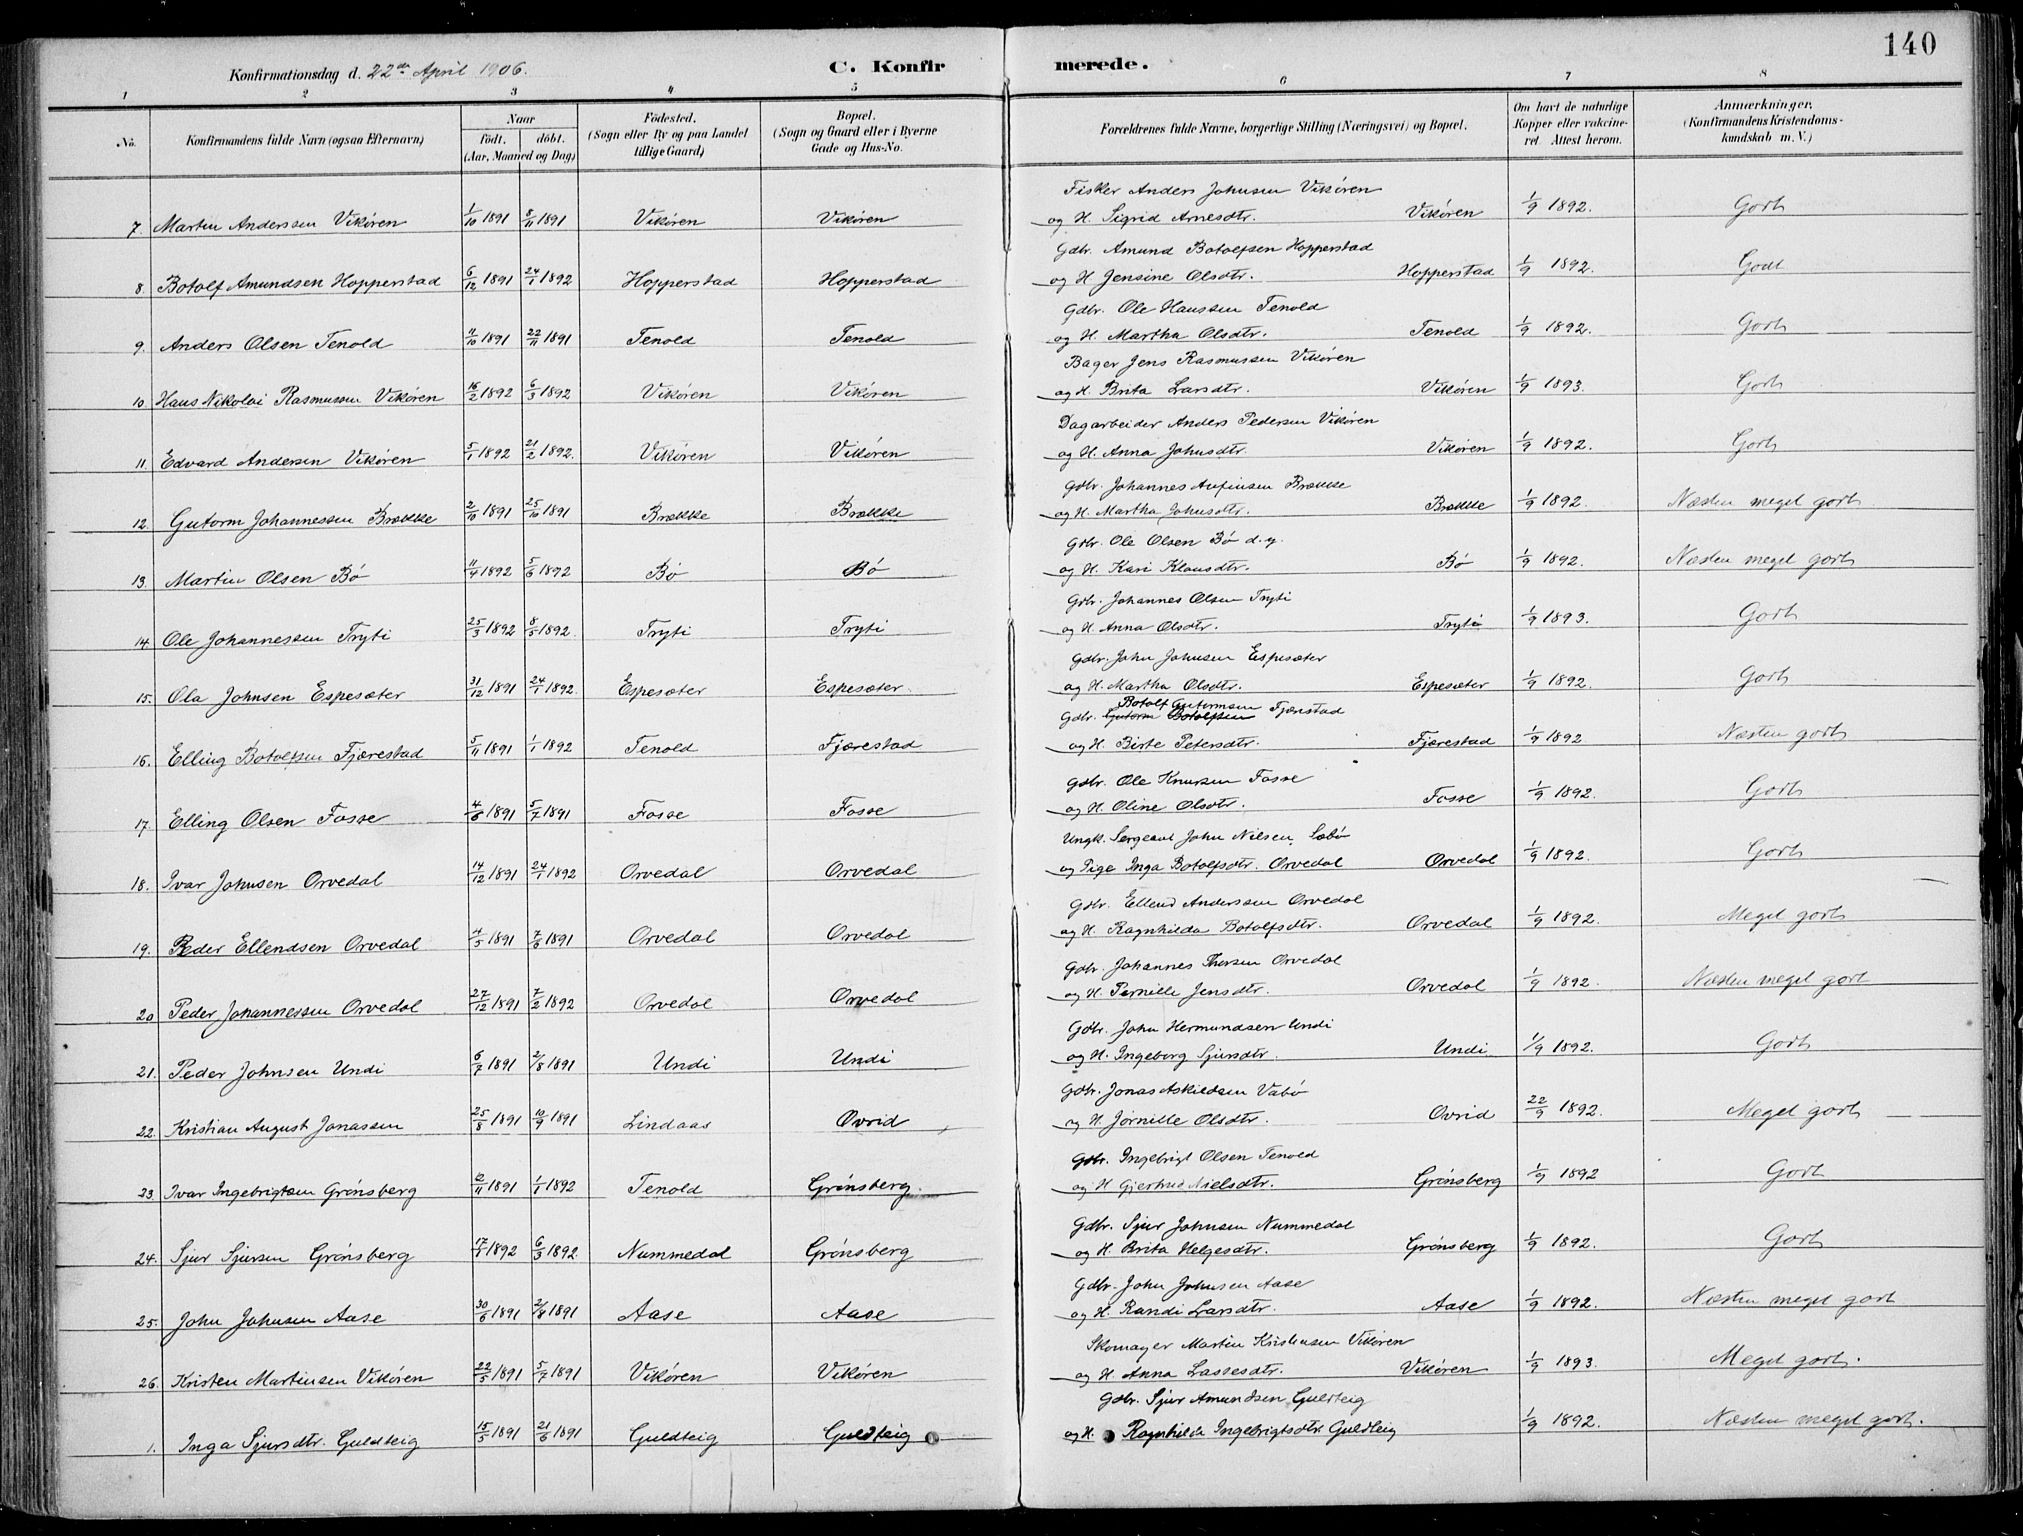 140
Konfirmationsdag d. 22de April 1906. C. Konfirmerede.
1 2 3 4 5 6 7 8
No. Konfirmandens fulde Navn (ogsaa Efternavn) Naar født. døbt. (Aar, Maaned og Dag) Fødested. (Sogn eller By og paa Landet tillige Gaard) Bopæl. (Sogn og Gaard eller i Byerne Gade og Hus-No. Forældrenes fulde Navne, borgerlige Stilling (Næringsvei) og Bopæl. Om havt de naturlige Kopper eller vakcineret. Attest herom. Anmærkninger. (Konfirmandens Kristendomskundskab m. V.)
Fisker Anders Johnsen Vikøren
7. Martin Anderssen Vikøren 1/10 1891 8/11 1891 Vikøren Vikøren og H. Sigrid Arnesdtr. Vikøren 1/9 1892. Godt
Gdbr. Amund Botolfsen Hopperstad
8. Botolf Amundsen Hopperstad 6/12 1891 24/1 1892 Hopperstad Hopperstad og H. Jensine Olsdtr. Hopperstad 1/9 1892. Godt
Gdbr. Ole Hanssen Tenold
9. Anders Olsen Tenold 11/10 1891 22/11 1891 Tenold Tenold og H. Martha Olsdtr. Tenold 1/9 1892. Godt
Bager Jens Rasmussen Vikøren
10. Hans Nikolai Rasmussen Vikøren 16/2 1892 6/3 1892 Vikøren Vikøren og H. Brita Larsdtr. Vikøren 1/9 1893. Godt
Dagarbeider Anders Pedersen Vikøren
11. Edvard Andersen Vikøren 5/1 1892 21/2 1892. Vikøren Vikøren og H. Anna Johnsdtr. Vikøren 1/9 1892. Godt
Gdbr. Johannes Anfinsen Brække
12. Gutorm Johannessen Brække 2/10 1891 25/10 1891 Brække Brække og H. Martha Johnsdtr. Brække 1/9 1892. Næsten meget godt
Gdbr. Ole Olsen Bø d.y.
13. Martin Olsen Bø 11/4 1892 5/6 1892 Bø Bø og H. Kari Klausdtr. Bø 1/9 1892. Næsten meget godt
Gdbr. Johannes Olsen Tryti
14. Ole Johannessen Tryti 25/3 1892 8/5 1892. Tryti Tryti og H. Anna Olsdtr. Tryti 1/9 1893. Godt
Gdbr. John Johnsen Espesæter
15. Ola Johnsen Espesæter 31/12 1891 24/1 1892. Espesæter Espesæter. og H. Martha Olsdtr. Espesæter 1/9 1892. Godt
Botolf Gutormsen
Gdbr. Gutorm Botolfsen Fjærestad
16. Elling Botolfsen Fjærestad 5/11 1891 1/1 1892 Tenold Fjærestad og H. Birte Petersdtr. Fjærestad 1/9 1892 Næsten godt
Gdbr. Ole Knutsen Fosse
17. Elling Olsen Fosse 4/6 1891 5/7 1891 Fosse Fosse og H. Oline Olsdtr. Fosse 1/9 1892. Godt
Ungk. Sergeant John Nilsen Sæbø
18. Ivar Johnsen Orvedal 14/12 1891 24/1 1892 Orvedal Orvedal og Pige Inga Botolfsdtr. Orvedal Orvedal 1/9 1892. Godt
Gdbr. Ellend Anderssen Orvedal
19. Peder Ellendsen Orvedal 4/5 1891 7/6 1891 Orvedal Orvedal og H. Ragnhilda Botolfsdtr. Orvedal 1/9 1892. Meget godt
Gdbr. Johannes Thorsen Orvedal
20 Peder Johannessen Orvedal 27/12 1891 7/2 1892 Orvedal Orvedal og H. Pernille Jensdtr. Orvedal 1/9 1892. Næsten meget godt
Gdbr. John Hermundsen Undi
21. Peder Johnsen Undi 6/7 1891 2/8 1891 Undi Undi og H. Ingeborg Sjursdtr. Undi 1/9 1892. Godt
Gdbr. Jonas Askildsen Vabø
22. Kristian August Jonassen 25/8 1891 10/9 1891 Lindaas Ovrid og H. Jørnille Olsdtr. Ovrid 22/9 1892. Meget godt
Gdbr. Ingebrigt Olsen Tenold
23. Ivar Ingebrigtsen Grønsberg 2/11 1891 1/1 1892 Tenold Grønsberg. og H Gjertrud Nielsdtr. Grønsberg 1/9 1892 Godt
Gdbr. Sjur Johnsen Nummedal
24. Sjur Sjursen Grønsberg 17/1 1892 6/3 1892. Nummedal Grønsberg og H. Brita Helgesdtr. Grønsberg 1/9 1892. Godt
Gdbr. John Johnsen Aase
25. John Johnsen Aase 30/6 1891 2/8 1891 Aase Aase og H. Randi Larsdtr. Aase 1/9 1892. Næsten meget godt
Skomager Martin Kristensen Vikøren
26. Kristen Martinsen Vikøren 22/5 1891 5/7 1891 Vikøren Vikøren og H. Anna Lassesdtr. Vikøren 1/9 1893. Meget godt.
Gdbr. Sjur Amundsen Guldteig
1. Inga Sjursdtr. Guldteig 15/5 1891 21/6 1891 Guldteig Guldteig og H. Ragnhilda Ingebrigtsdtr. Guldteig 1/9 1892. Næsten meget godt.